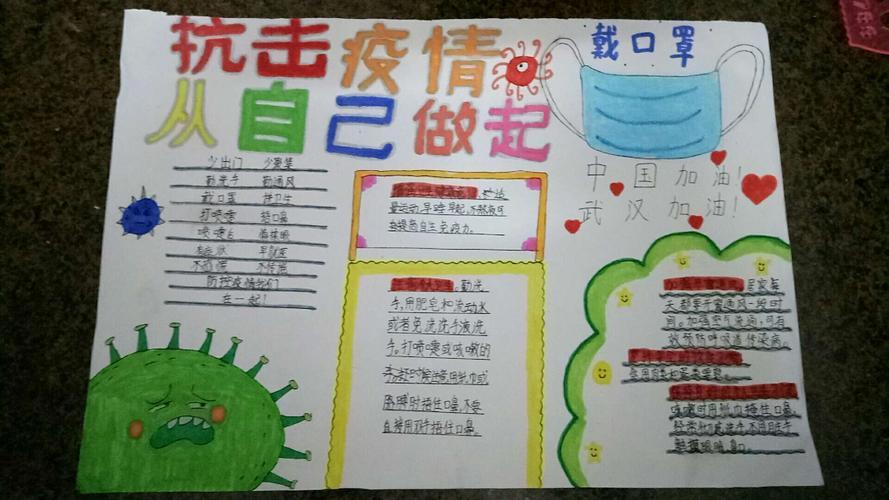 抗击疫情
从自己做起
戴口罩
中国加油!
武汉加油!
少出门 少聚集
勤洗手 勤通风
戴口罩 讲卫生
打喷嚏 捂口鼻
早就医
防控疫情我们
在一起!
量运动,早睡早起,
自主免疫力。
勤洗
手,用肥皂和流动水
或者免洗洗手液洗
手。打喷嚏或咳嗽的
时候注意用纸巾或
胳膊肘捂住口鼻,不要
直接用双手捂住口鼻。
居家每
天都要开窗通风一段时
间。加强空气流通,可有
效预防呼吸道传染病。
咳嗽时用纸巾捂住口鼻,
经常彻底洗手,不用脏手
触摸眼睛、鼻、口。